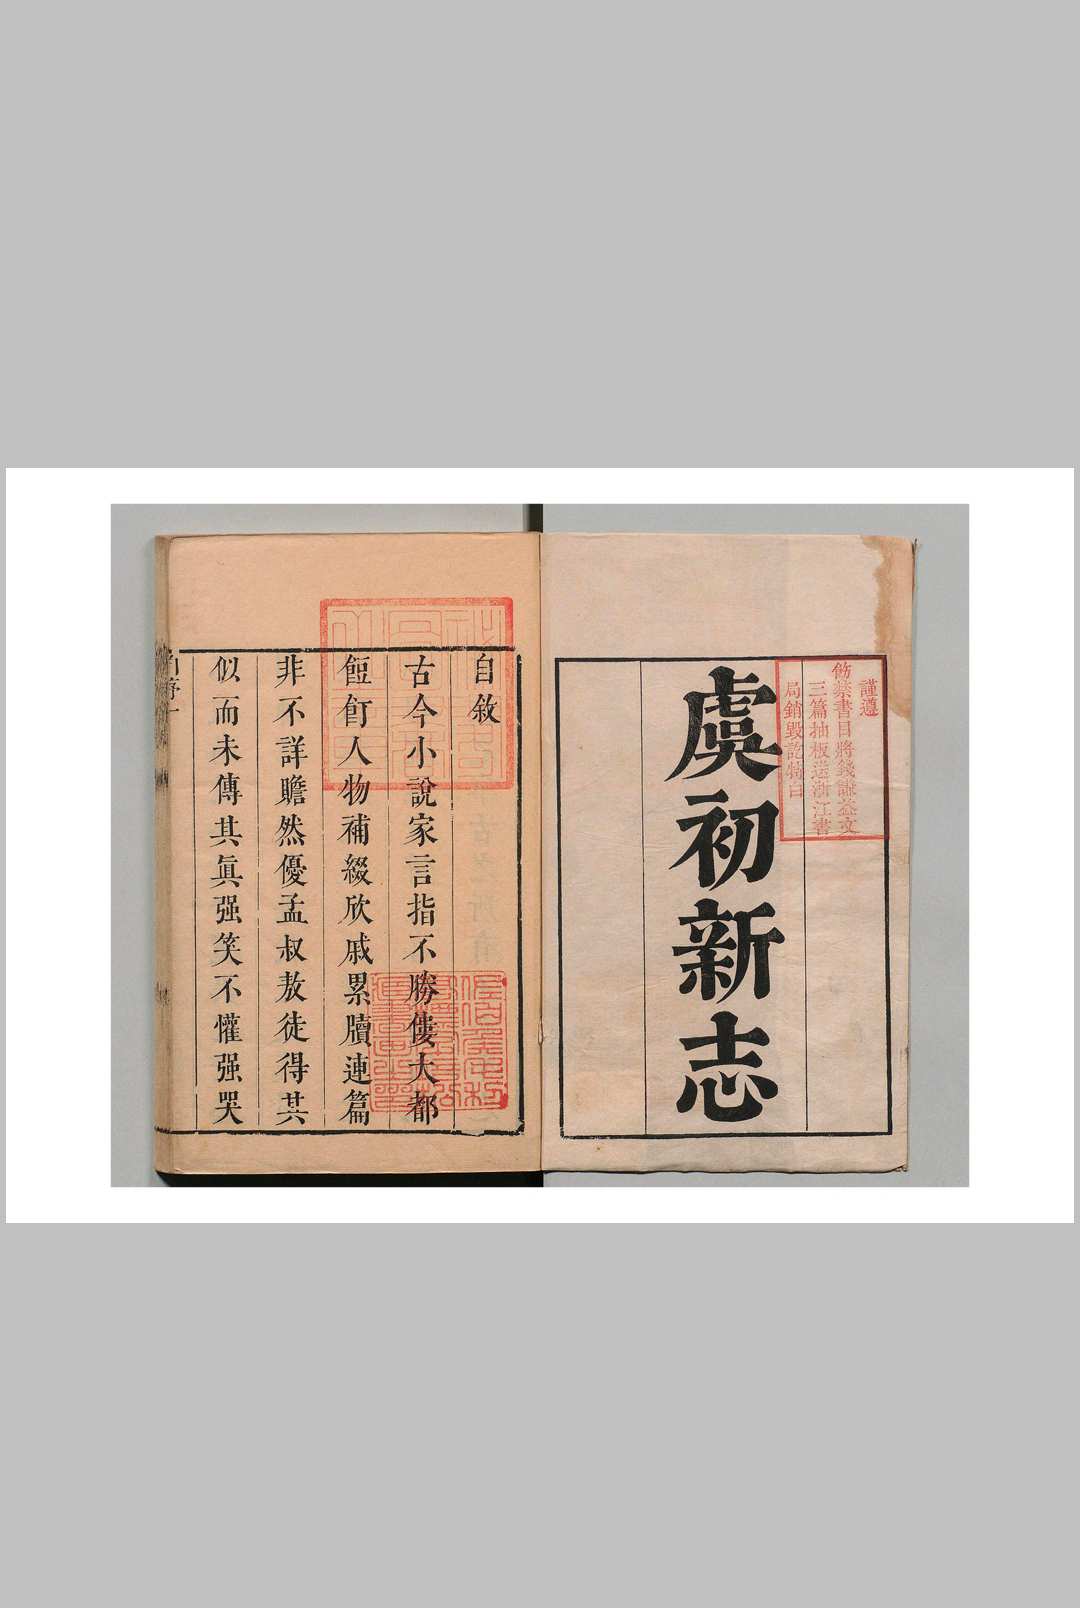 謹遵
飭禁書目將錢謙益文
三篇抽板送浙江書
局銷毀訖特白
虞初新志
自敘
古今小說家言指不勝僂大都
餖飣人物補綴欣戚累牘連篇
非不詳贍然優孟叔敖徒得其
似而未傳其眞强笑不懽强哭